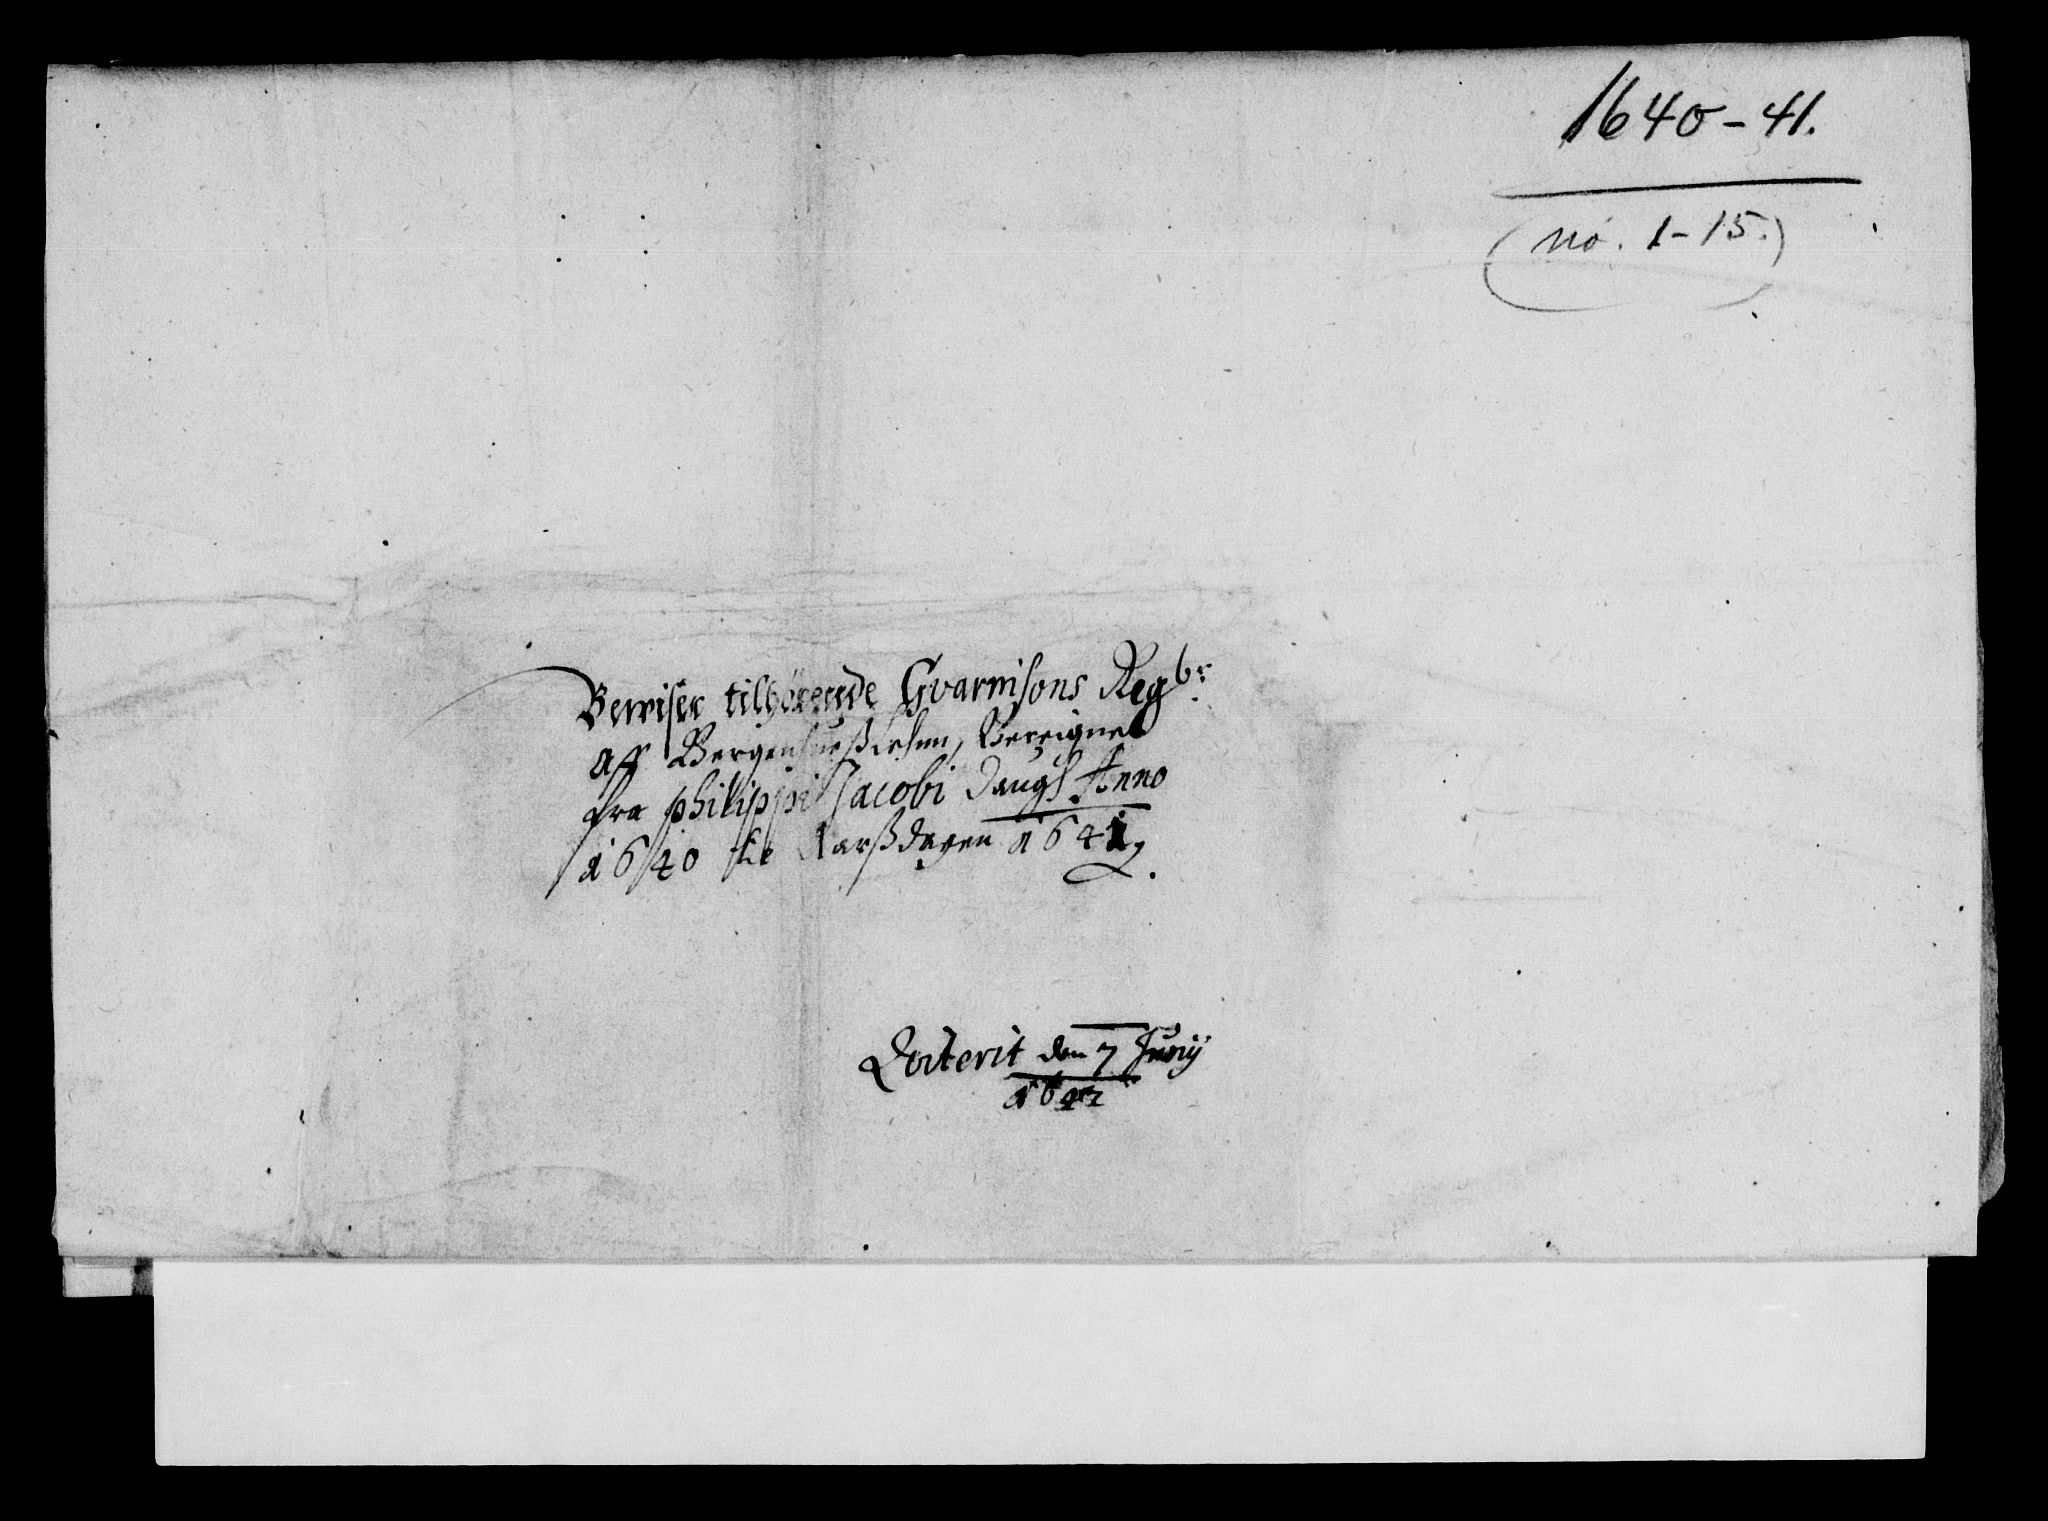 1640-41.
(no. 1-15.)
Bewiser tilhörende Gvarnisons Regbr.
aff Bergenhueß Lehn, Bereignet
fra Philippi Jacobi Daugs Anno
1640 til Aarßdagen 1641.
den 7 Junij